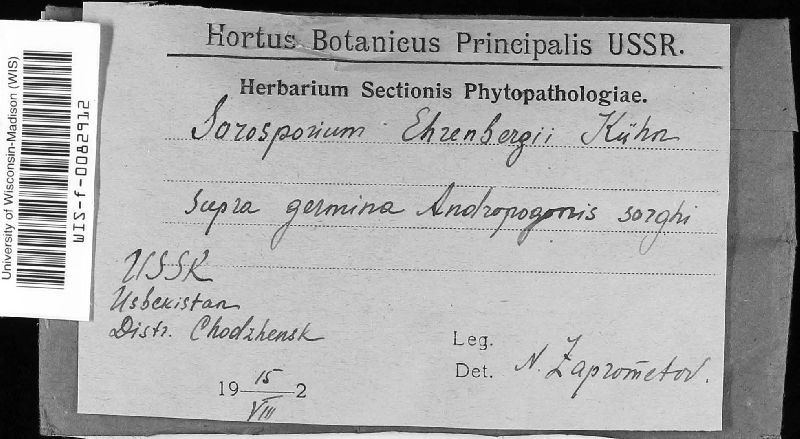 Hortus Botanicus Principalis USSR.
Herbarium Sectionis Phytopathologiae.
Sorosporium Ehrenbergii Kühn
supra germina Andropogonis sorghi
USSR
Usbekistan
Distr. Chodzhensk
Leg.
Det. N. Zaprometov.
19 15/VIII 2
University of Wisconsin-Madison (WIS)
WIS-f-0082912